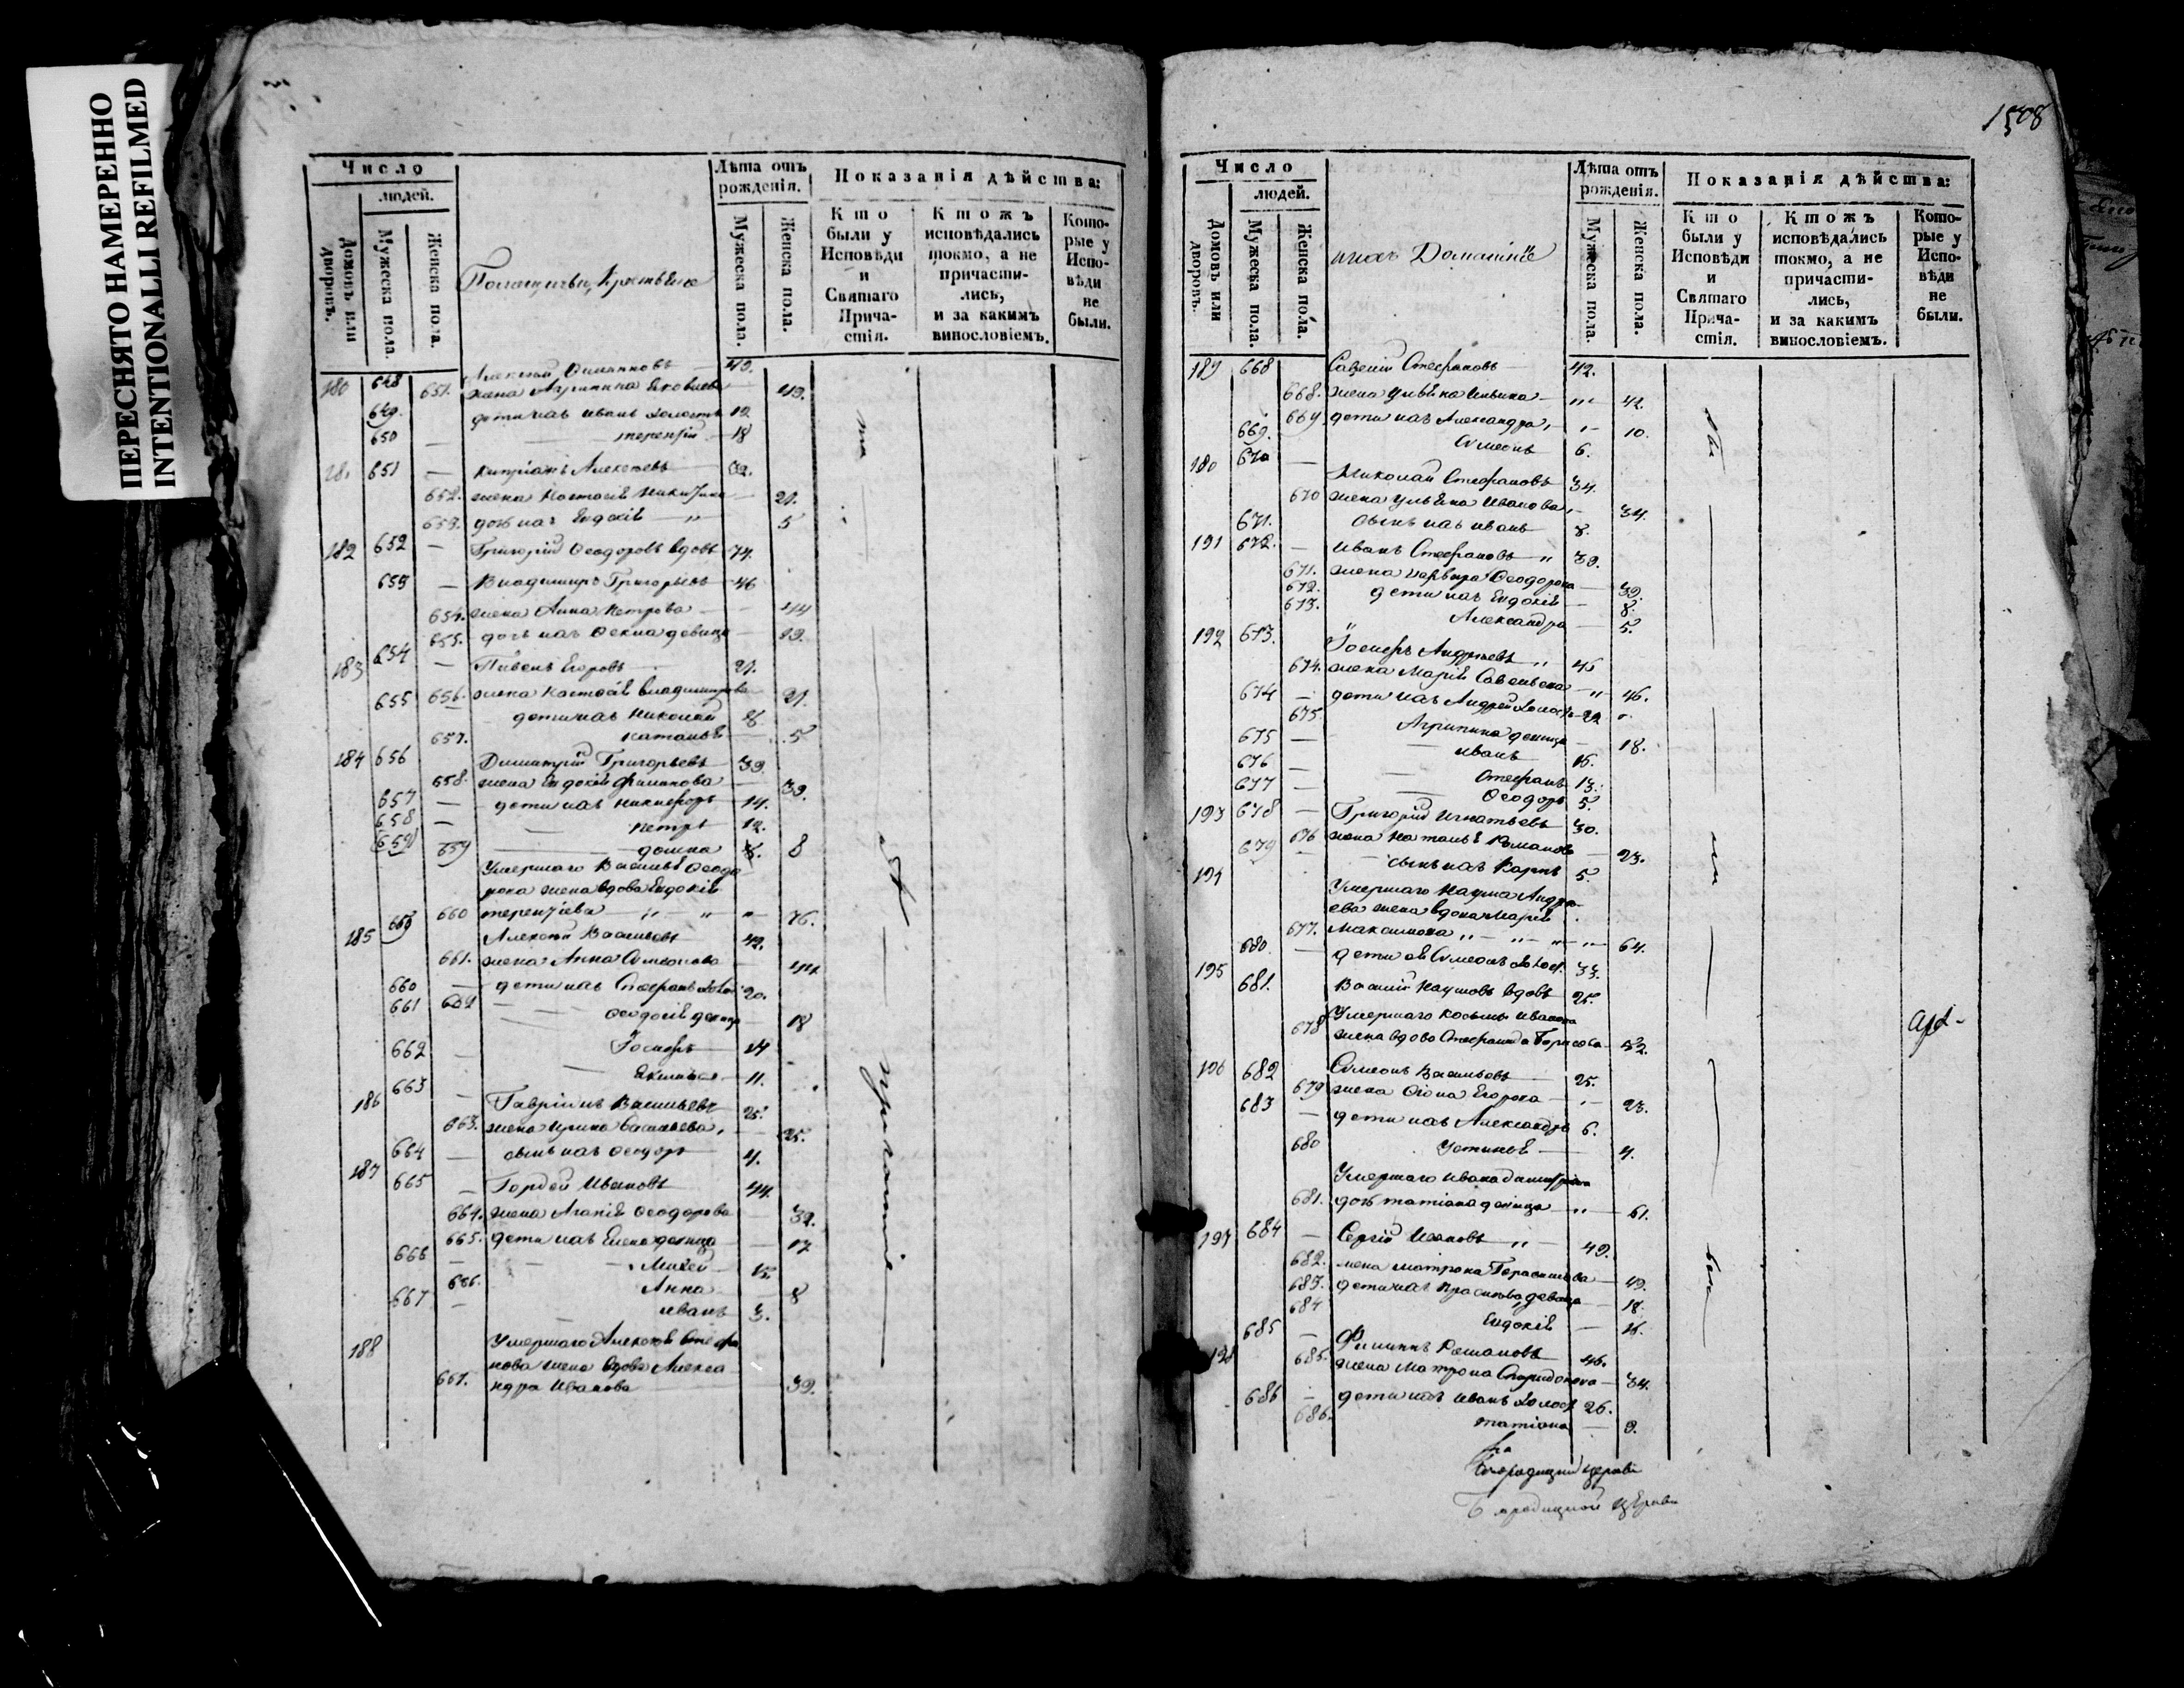 ПЕРЕСНЯТО НАМЕРЕННО
INTENTIONALLI REFILMED
Число
людей.
Домовъ или дворовъ.
Мужеска пола.
Женска пола.
Помещичьи Крестьяне
Лѣта отъ рожденія.
Мужеска пола.
Женска пола.
Показанія дѣйства:
Кто были у Исповѣди и Святаго Прича-стія.
Ктожъ исповѣдались токмо, а не причасти-лись, и за какимъ винословіемъ.
Кото-рые у Испо-вѣди не были.
180 648 Алексей 49.
651. жена Агрипина Яковлева 49.
649. дети ихъ Иванъ холостъ 19
650 — терентій 18
651 — Киприанъ Алексеевъ
652. жена Настасія 21.
653. дочь ихъ Евдокія 5
182 652 — Григорій Ѳеодоровъ вдовъ 74.
653 — Владимиръ Григорьевъ 46
654. жена Анна Петрова 44
655. дочь ихъ Ѳекла девица 19.
183 654 — Егоровъ 21.
656. жена Настасія Владимирова 21.
655 дети ихъ Николай
657. Наталья 5
184 656 Димитрій Григорьевъ 39.
658. жена Евдокія Филипова 39.
657 — дети ихъ Никифоръ 14.
658 — Петръ 12.
659 домна 8
Умершаго Василья Ѳеодо
рова жена вдова Евдокія
660 терентіева 76.
185 Алексей Васильевъ 42.
661. жена Анна Симеонова
660 — дети ихъ Стефанъ холос 20.
661 Ѳеодосія девица 18
662 — Іосифъ 14
663 11.
186 Гавріилъ Васильевъ 25.
663. жена Ирина Васильева, 25.
664 — сынъ ихъ Ѳеодоръ 4.
187 665 — Гордей Ивановъ 44.
664. жена Агапія Ѳеодорова 39.
665. дети ихъ Елена девица 17
666 — Михей 15.
666. Анна 8
667 — Иванъ 3.
188 Умершаго Алексея Стефа
нова жена вдова Алекса
667. ндра Иванова 39.
1508
Число
людей.
Домовъ или дворовъ.
Мужеска пола.
Женска пола.
ихъ Домашніе
Лѣта отъ рожденія.
Мужеска пола.
Женска пола.
Показанія дѣйства:
Кто были у Исповѣди и Святаго Прича-стія.
Ктожъ исповѣдались токмо, а не причасти-лись, и за какимъ винословіемъ.
Кото-рые у Испо-вѣди не были.
189 668 Савелій Стефановъ 42.
668. жена Ульяна Ильина 42.
669 дети ихъ Александра, 10.
669. Симеонъ 6.
180 670 — Николай Стефановъ 34.
670 жена Ульяна Иванова, 34.
671. сынъ ихъ Иванъ 8.
191 672. — Иванъ Стефановъ 39.
671. жена Варвара Ѳеодорова 39.
672. дети ихъ Евдокія 8.
673. Александра 5.
192 673. Іосифъ Андреевъ 46
674. жена Марія Савельева 46.
674 — дети ихъ Андрей холостъ 22
675. Агрипина девица 18.
675 — Иванъ 15.
676 — Стефанъ 13.
677 — Ѳеодоръ 5.
193 678 — Григорій Игнатьевъ 30.
676 жена Наталья Романова 23.
679 — сынъ ихъ Карпъ 5.
194 Умершаго Наума Андре
ева жена вдова Марія
677. Максимова 64.
680. — дети ея Симеонъ холос. 33.
195 681. Василій Наумовъ вдовъ 25.
Умершаго Косьмы Иванова
678 жена вдова Стефанида Борисова 52.
196 682 Симеонъ Васильевъ 25.
679 жена Егорова 23.
683 — дети ихъ Александръ 6.
680 Устинья 4.
Умершаго Ивана
681. дочь татіана девица 61.
197 684 — Сергій Ивановъ 49.
682. жена Матрона Герасимова 49.
683. дети ихъ девица 18.
684 Евдокія 16.
198 685 — Филиппъ Романовъ 46.
685. жена Матрона Спиридонова 34.
686 — дети ихъ Иванъ холост 26.
686. татіана 9.
церкви
церкви